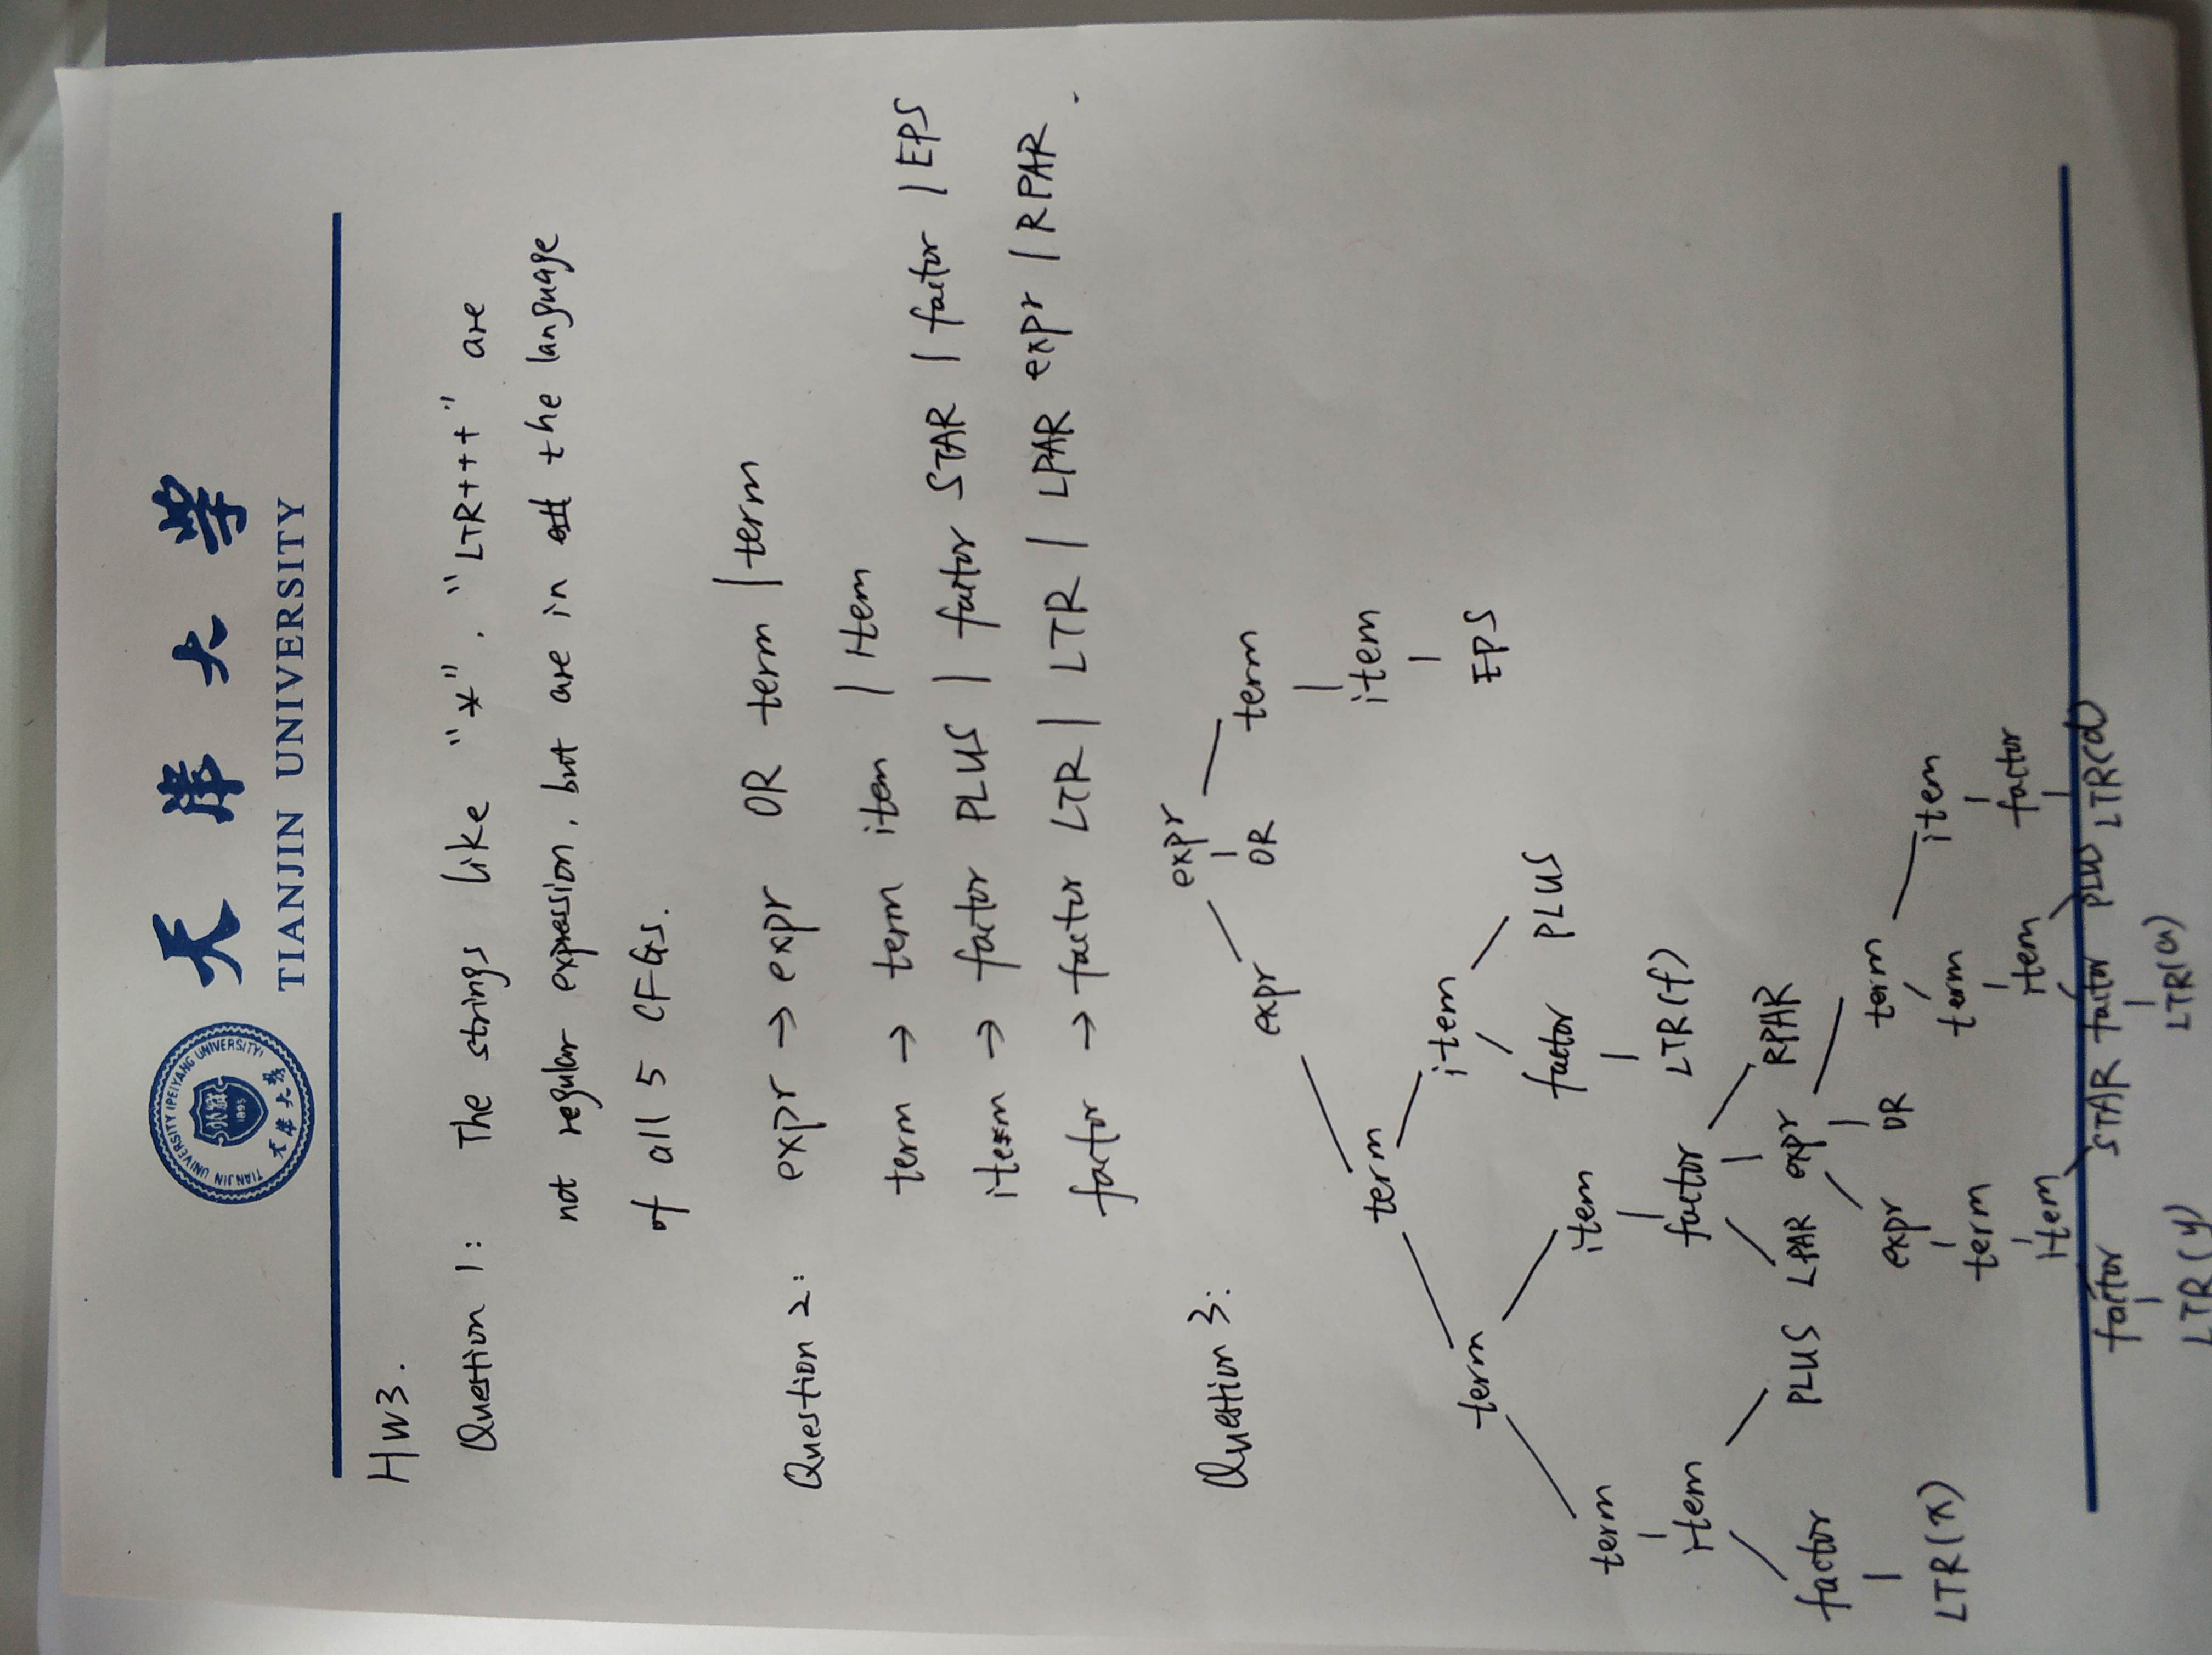 TIANJIN UNIVERSITY (PEIYANG UNIVERSITY)
北洋
1895
天津大学
天津大学
TIANJIN UNIVERSITY
HW3.
Question 1: The strings like "*". "LTR+++" are
not regular expression, but are in the language
of all 5 CFGs.
Question 2: expr → expr OR term | term
term → term item | item
item → factor PLUS | factor STAR | factor | EPS
factor → factor LTR | LTR | LPAR expr | RPAR.
Question 3:
expr
expr OR term
term item
term item EPS
term item factor PLUS
item factor LTR(f)
factor PLUS LPAR expr RPAR
LTR(x) expr OR term
term term item
item item factor
factor STAR factor PLUS LTR(d)
LTR(y) LTR(a)